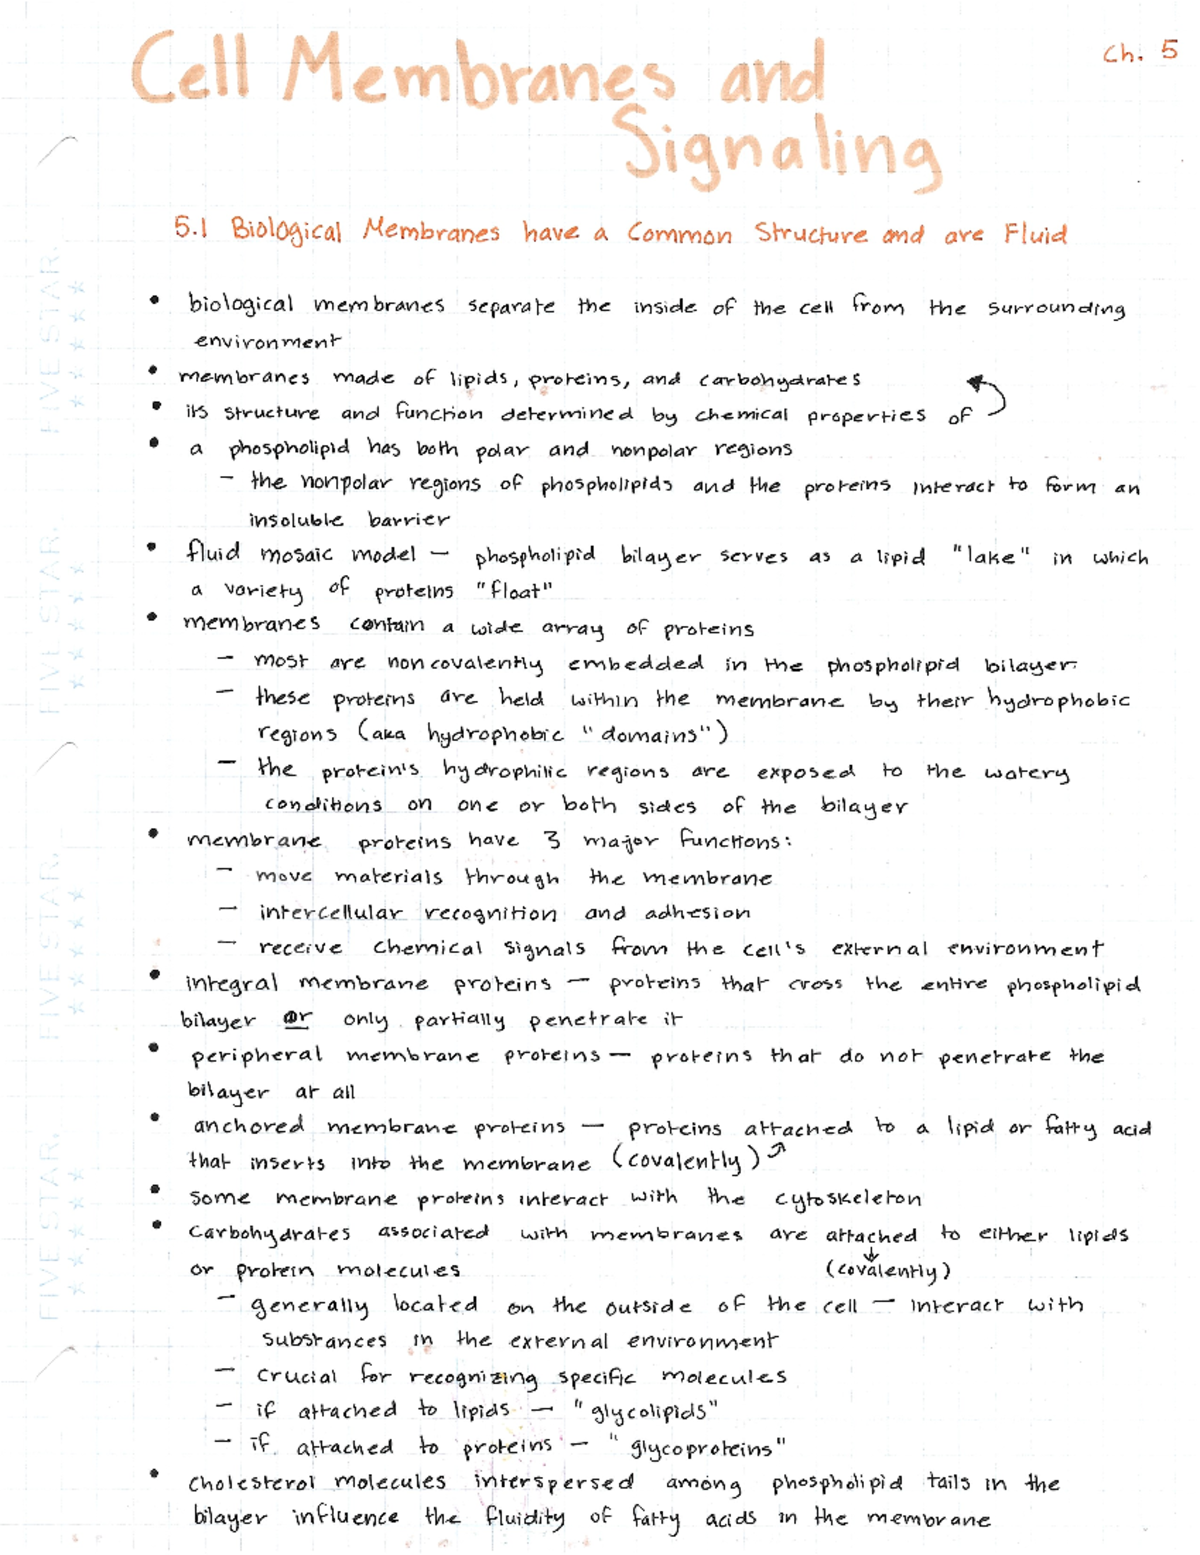 Ch. 5
Cell Membranes and
Signaling
5.1 Biological Membranes have a Common Structure and are Fluid
• biological membranes separate the inside of the cell from the surrounding
environment
• membranes made of lipids, proteins, and carbohydrates
• its structure and function determined by chemical properties of
• a phospholipid has both polar and nonpolar regions
– the nonpolar regions of phospholipids and the proteins interact to form an
insoluble barrier
• fluid mosaic model – phospholipid bilayer serves as a lipid "lake" in which
a variety of proteins "float"
• membranes contain a wide array of proteins
– most are noncovalently embedded in the phospholipid bilayer
– these proteins are held within the membrane by their hydrophobic
regions (aka hydrophobic "domains")
– the protein's hydrophilic regions are exposed to the watery
conditions on one or both sides of the bilayer
• membrane proteins have 3 major functions:
– move materials through the membrane
– intercellular recognition and adhesion
– receive chemical signals from the cell's external environment
• integral membrane proteins – proteins that cross the entire phospholipid
bilayer or only partially penetrate it
• peripheral membrane proteins – proteins that do not penetrate the
bilayer at all
• anchored membrane proteins – proteins attached to a lipid or fatty acid
that inserts into the membrane (covalently)
• some membrane proteins interact with the cytoskeleton
• Carbohydrates associated with membranes are attached to either lipids
or protein molecules (covalently)
– generally located on the outside of the cell – interact with
substances in the external environment
– crucial for recognizing specific molecules
– if attached to lipids – "glycolipids"
– if attached to proteins – "glycoproteins"
• cholesterol molecules interspersed among phospholipid tails in the
bilayer influence the fluidity of fatty acids in the membrane
FIVE STAR.
FIVE STAR.
FIVE STAR.
FIVE STAR.